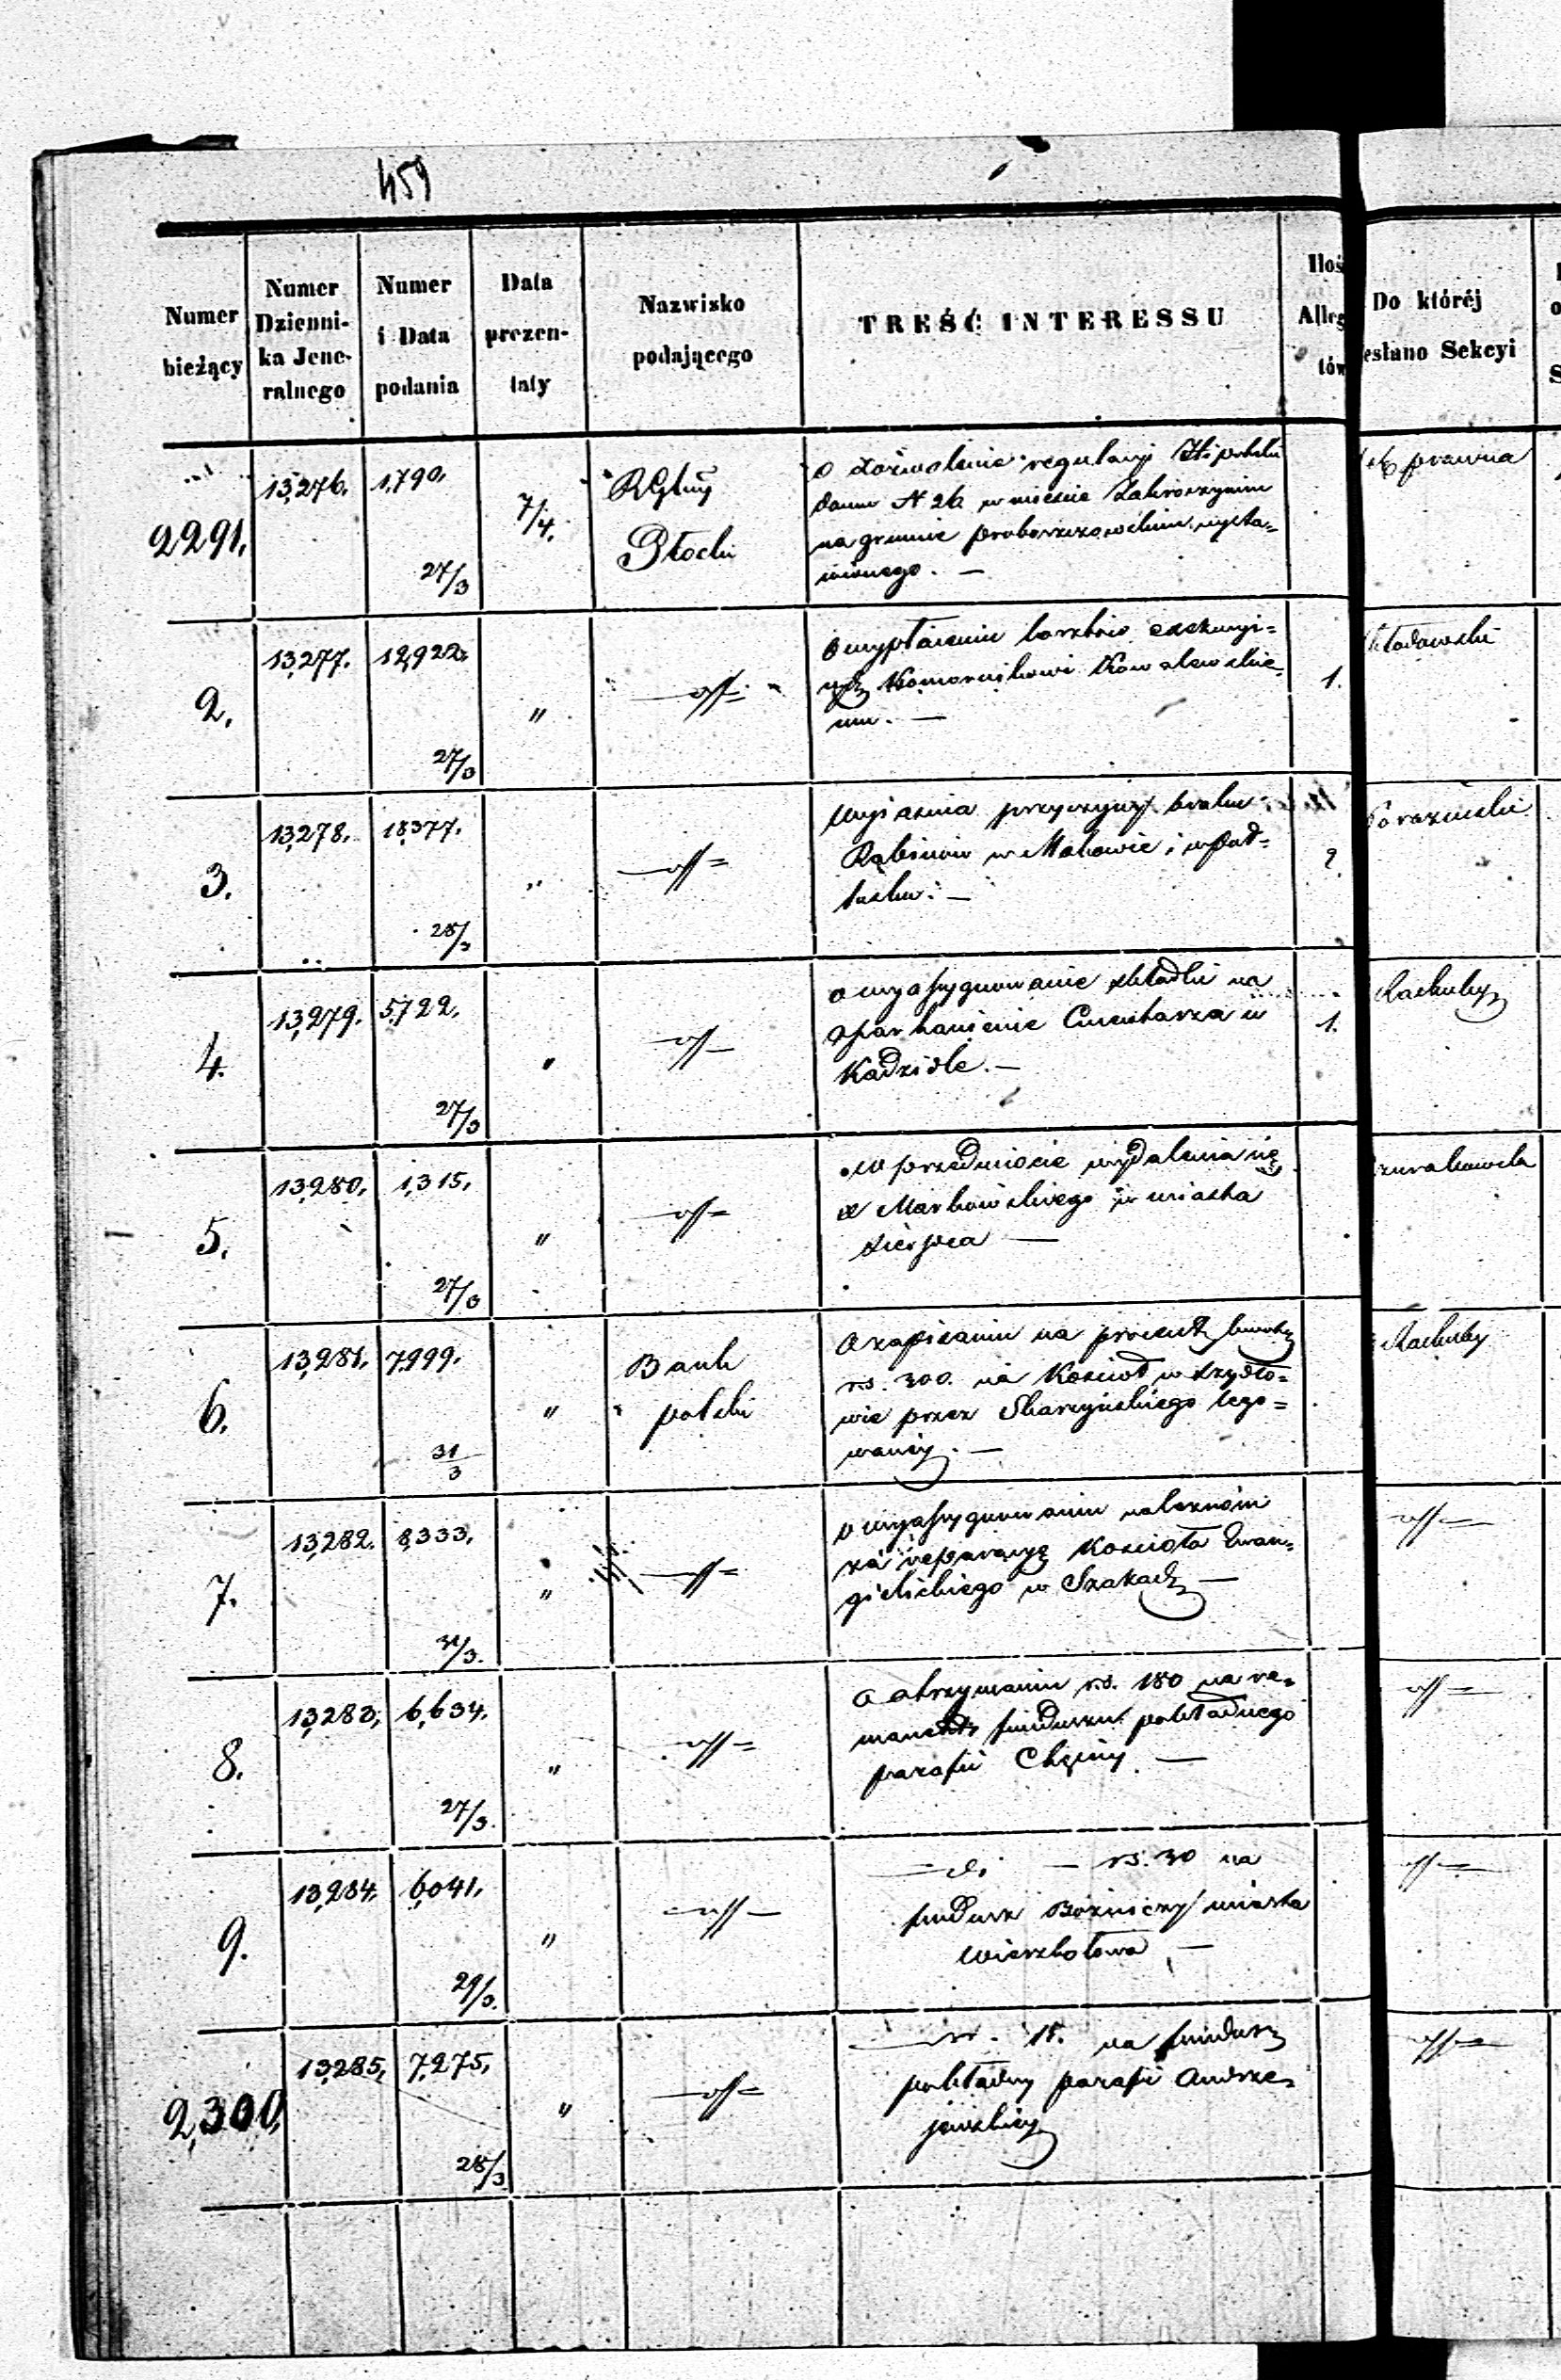 459
Numer bieżący
Numer Dzienni- ka Jene- ralnego
Numer i Data podania
Data prezen- taty
Nazwisko podającego
TREŚĆ INTERESSU
Iloś Alleg tów
Do któréj esłano Sekcyi
2291.
13,276.
1,790.
27/3
7/4.
RGłny
Płocki
o dozwolenie regulacyi Hipoteki
domu N 26 w mieście Zakroczymiu
na gruncie proboszczowskim wysta-
wionego. —
prawna
2.
13,277.
12,922.
27/3
"
o wypłacenie kosztów exekucyi=
Komornikowi Kowalewskie=
mu. —
1.
3.
13,278.
18,377.
28/3
"
Wyjaśnia przyczyny braku
Rabinów w Makowie i w Puł=
tusku. —
2.
4.
13,279.
5,722.
27/3
"
o wyasygnowanie składki na
oparkanienie Cmentarza w
Kadzidle. —
1.
Rachuby
5.
13,280.
1,315.
27/3
"
w przedmiocie wydalenia się
X Markowskiego z miasta
Sierpca —
6.
13,281.
7,999.
31/3
"
Bank
polski
O zapisaniu na procent kwoty
rs. 300. na Kościół w Szydło=
wie przez Skarzyńskiego lego=
waney. —
Rachuby
7.
13,282.
8,333.
31/3.
"
o wyasygnowaniu należności
za reparacyę Kościoła Ewan=
gielickiego w —
8.
13,283,
6,634.
27/3.
"
O otrzymaniu rs. 180 na re=
manent funduszu pokładnego
parafii Chęciny. —
9.
13,284.
6,041.
29/3.
"
— di — rs. 30 na
fundusz Bożniczy miasta
Wierzbołowa —
2,300.
13,285,
7,275,
28/3
"
15. na fundusz
pokładny parafii Andrze=
jewskiey